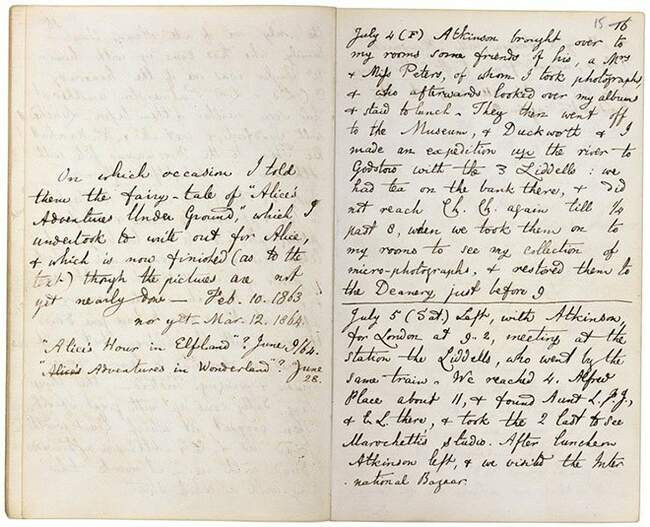 On which occasion I told
them the fairy-tale of "Alice's
Adventures Under Ground," which I
undertook to write out for Alice,
& which is now finished (as to the
text) though the pictures are not
yet nearly done — Feb. 10. 1863
nor yet — Mar. 12. 1864.
"Alice's Hour in Elfland"? June 9/64.
"Alice's Adventures in Wonderland"? June
28.
15 16
July 4 (F) Atkinson brought over to
my rooms some friends of his, a Mrs
& Miss Peters, of whom I took photographs,
& who afterwards looked over my albums
& staid to lunch. They then went off
to the Museum, & Duckworth & I
made an expedition up the river to
Godstow with the 3 Liddells: we
had tea on the bank there, & did
not reach Ch. Ch. again till 1/4
past 8, when we took them on to
my rooms to see my collection of
micro-photographs, & restored them to
the Deanery, just before 9
July 5 (Sat.) Left, with Atkinson,
for London at 9-2, meeting at the
station the Liddells, who went by the
same train. We reached 4. Alfred
Place about 11, & found Aunt L. P. J.,
& E. L. there, & took the 2 last to see
Marochetti's studio. After luncheon
Atkinson left, & we visited the Inter
-national Bazaar.